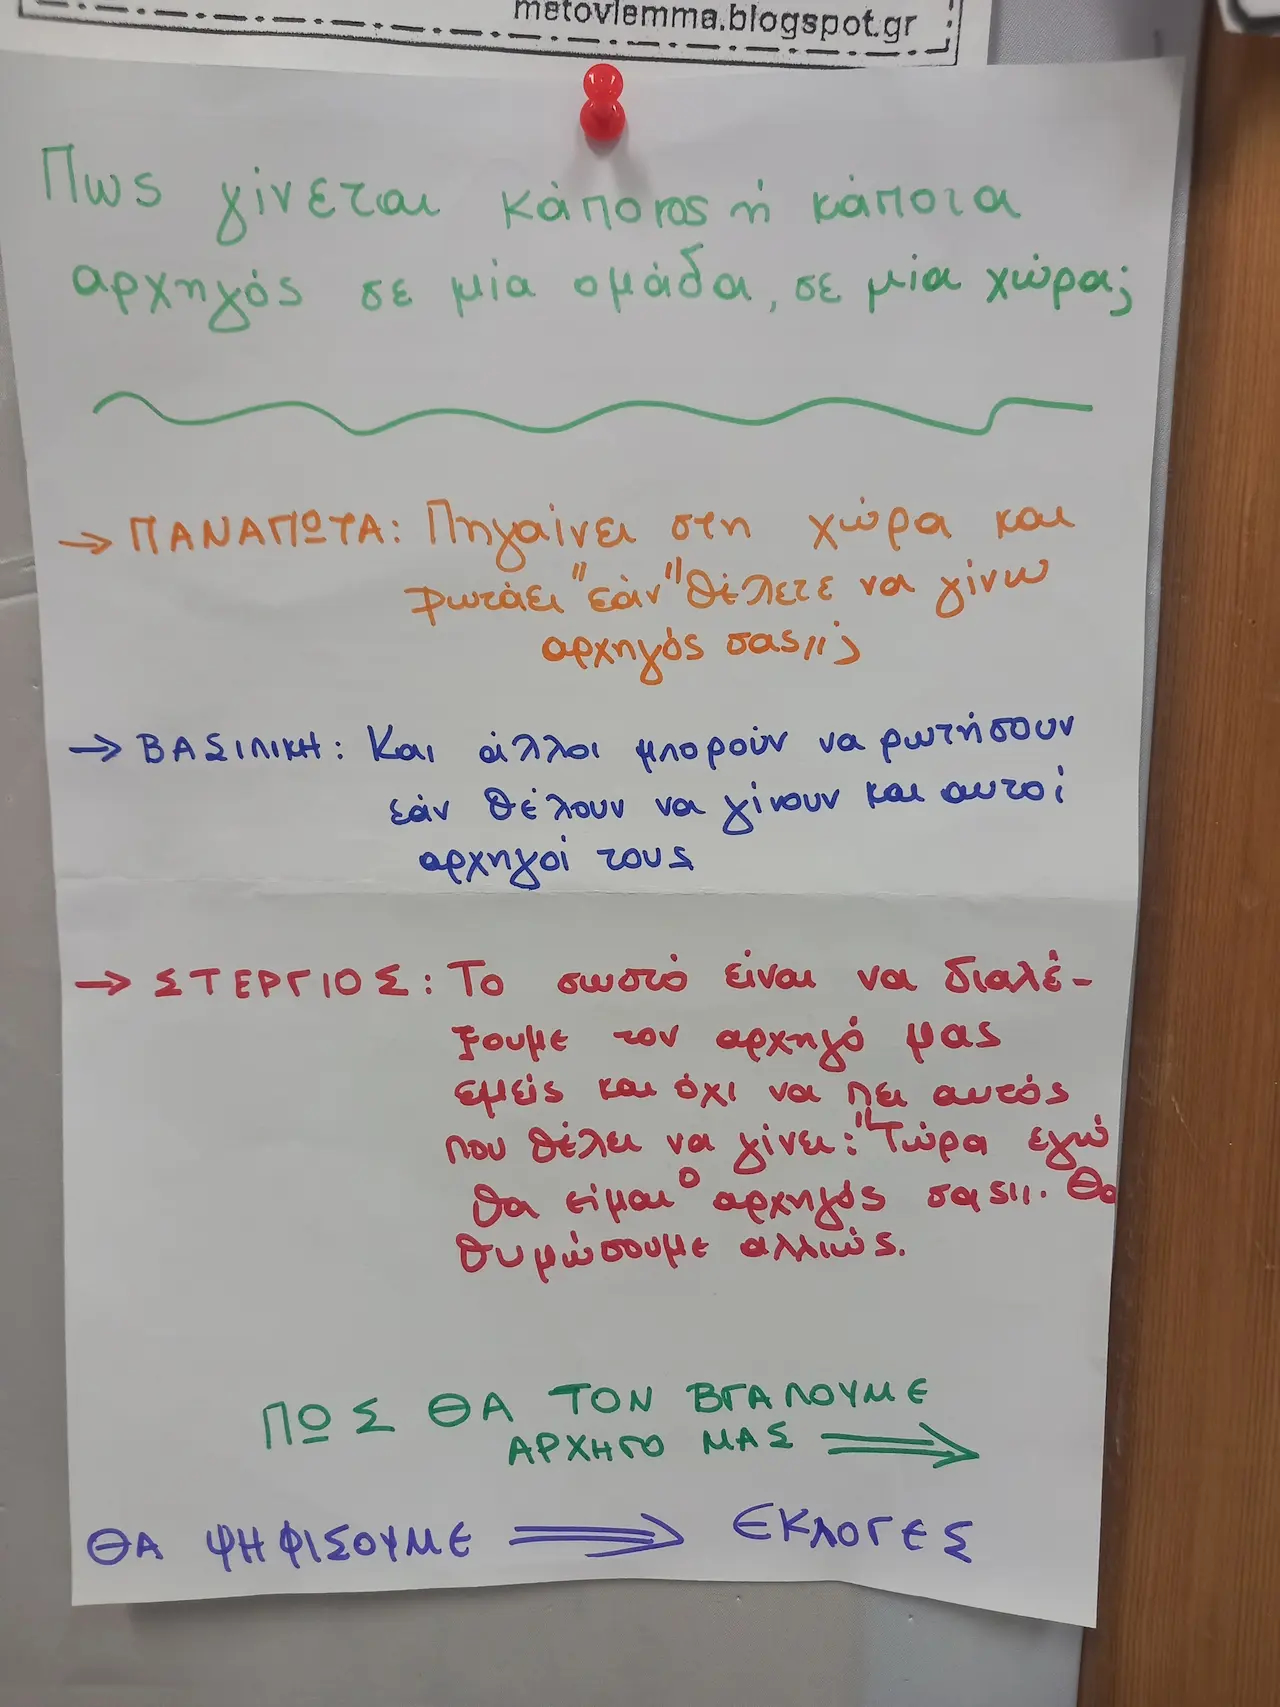 metovlemma.blogspot.gr
Πως γίνεται κάποιος ή κάποια
αρχηγός σε μία ομάδα, σε μία χώρα;
→ ΠΑΝΑΓΙΩΤΑ: Πηγαίνει στη χώρα και
ρωτάει "εάν" θέλετε να γίνω
αρχηγός σας,,;
→ ΒΑΣΙΛΙΚΗ: Και άλλοι μπορούν να ρωτήσουν
εάν θέλουν να γίνουν και αυτοί
αρχηγοί τους
→ ΣΤΕΡΓΙΟΣ: Το σωστό είναι να διαλέ-
ξουμε τον αρχηγό μας
εμείς και όχι να πει αυτός
που θέλει να γίνει: "Τώρα εγώ
θα είμαι ο αρχηγός σας,,. Θα
θυμώσουμε αλλιώς.
ΠΩΣ ΘΑ ΤΟΝ ΒΓΑΛΟΥΜΕ
ΑΡΧΗΓΟ ΜΑΣ ⟹
ΘΑ ΨΗΦΙΣΟΥΜΕ ⟹ ΕΚΛΟΓΕΣ